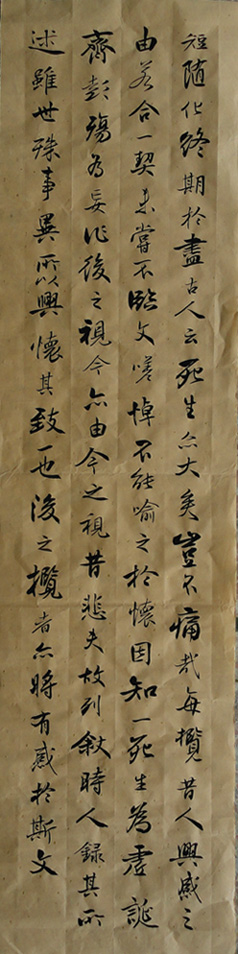 短随化终期於盡古人云死生亦大矣豈不痛哉每攬昔人興感之
由若合一契未嘗不臨文嗟悼不能喻之於懷固知一死生為虛誕
齊彭殤為妄作後之視今亦由今之視昔悲夫故列叙時人錄其所
述雖世殊事異所以興懷其致一也後之攬者亦將有感於斯文